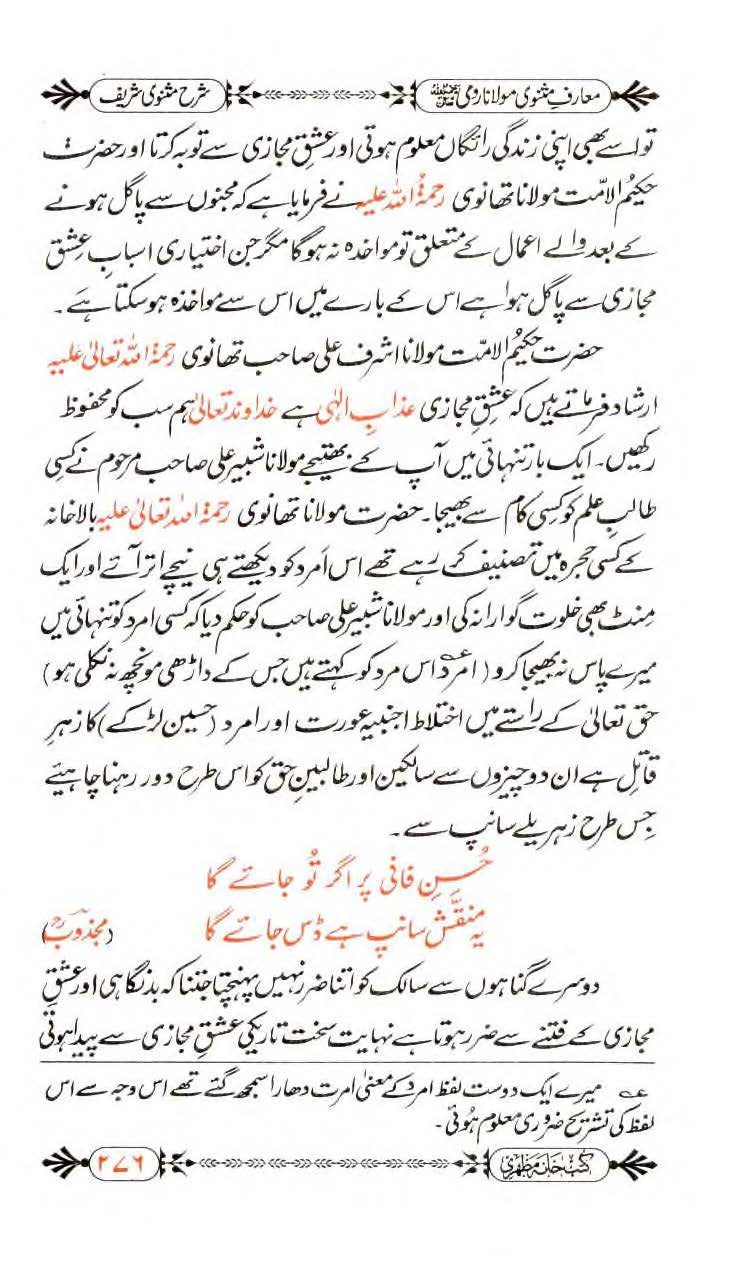 معارفِ مثنوی مولانا رومی رحمۃ اللہ علیہ
شرح مثنوی شریف
تو اسے بھی اپنی زندگی رائگاں معلوم ہوتی اور عشقِ مجازی سے توبہ کرتا اور حضرت
حکیمُ الامّت مولانا تھانوی رحمۃُ اللہ علیہ نے فرمایا ہے کہ مجنوں سے پاگل ہونے
کے بعد والے اعمال کے متعلق تو مواخذہ نہ ہوگا مگر جن اختیاری اسبابِ عشقِ
مجازی سے پاگل ہوا ہے اس کے بارے میں اس سے مواخذہ ہوسکتا ہے۔
حضرت حکیمُ الامّت مولانا اشرف علی صاحب تھانوی رحمۃُ اللہ تعالیٰ علیہ
ارشاد فرماتے ہیں کہ عشقِ مجازی عذابِ الٰہی ہے خداوند تعالیٰ ہم سب کو محفوظ
رکھیں۔ ایک بار تنہائی میں آپ کے بھتیجے مولانا شبیر علی صاحب مرحوم نے کسی
طالبِ علم کو کسی کام سے بھیجا۔ حضرت مولانا تھانوی رحمۃُ اللہ تعالیٰ علیہ بالاخانہ
کے کسی حجرہ میں تصنیف کر رہے تھے اس اَمرد کو دیکھتے ہی نیچے اتر آئے اور ایک
مِنٹ بھی خلوت گوارا نہ کی اور مولانا شبیر علی صاحب کو حکم دیا کہ کسی امرد کو تنہائی میں
میرے پاس نہ بھیجا کرو (امرد؏ اس مرد کو کہتے ہیں جس کے داڑھی مونچھ نہ نکلی ہو)
حق تعالیٰ کے راستے میں اختلاط اجنبیہ عورت اور امرد (حسین لڑکے) کا زہرِ
قاتِل ہے ان دو چیزوں سے سالکین اور طالبینِ حق کو اس طرح دور رہنا چاہیئے
جس طرح زہریلے سانپ سے۔
حُسنِ فانی پر اگر تُو جائے گا
یہ منقّش سانپ ہے ڈس جائے گا (مجذوبؒ)
دوسرے گناہوں سے سالک کو اتنا ضرر نہیں پہنچتا جتنا کہ بدنگاہی اور عشقِ
مجازی کے فتنے سے ضرر ہوتا ہے نہایت سخت تاریکی عشقِ مجازی سے پیدا ہوتی
؏ میرے ایک دوست لفظ امرد کے معنیٰ امرت دھارا سمجھ گئے تھے اس وجہ سے اس
لفظ کی تشریح ضروری معلوم ہُوئی۔
کتب خانہ مظہری
۲۷۶